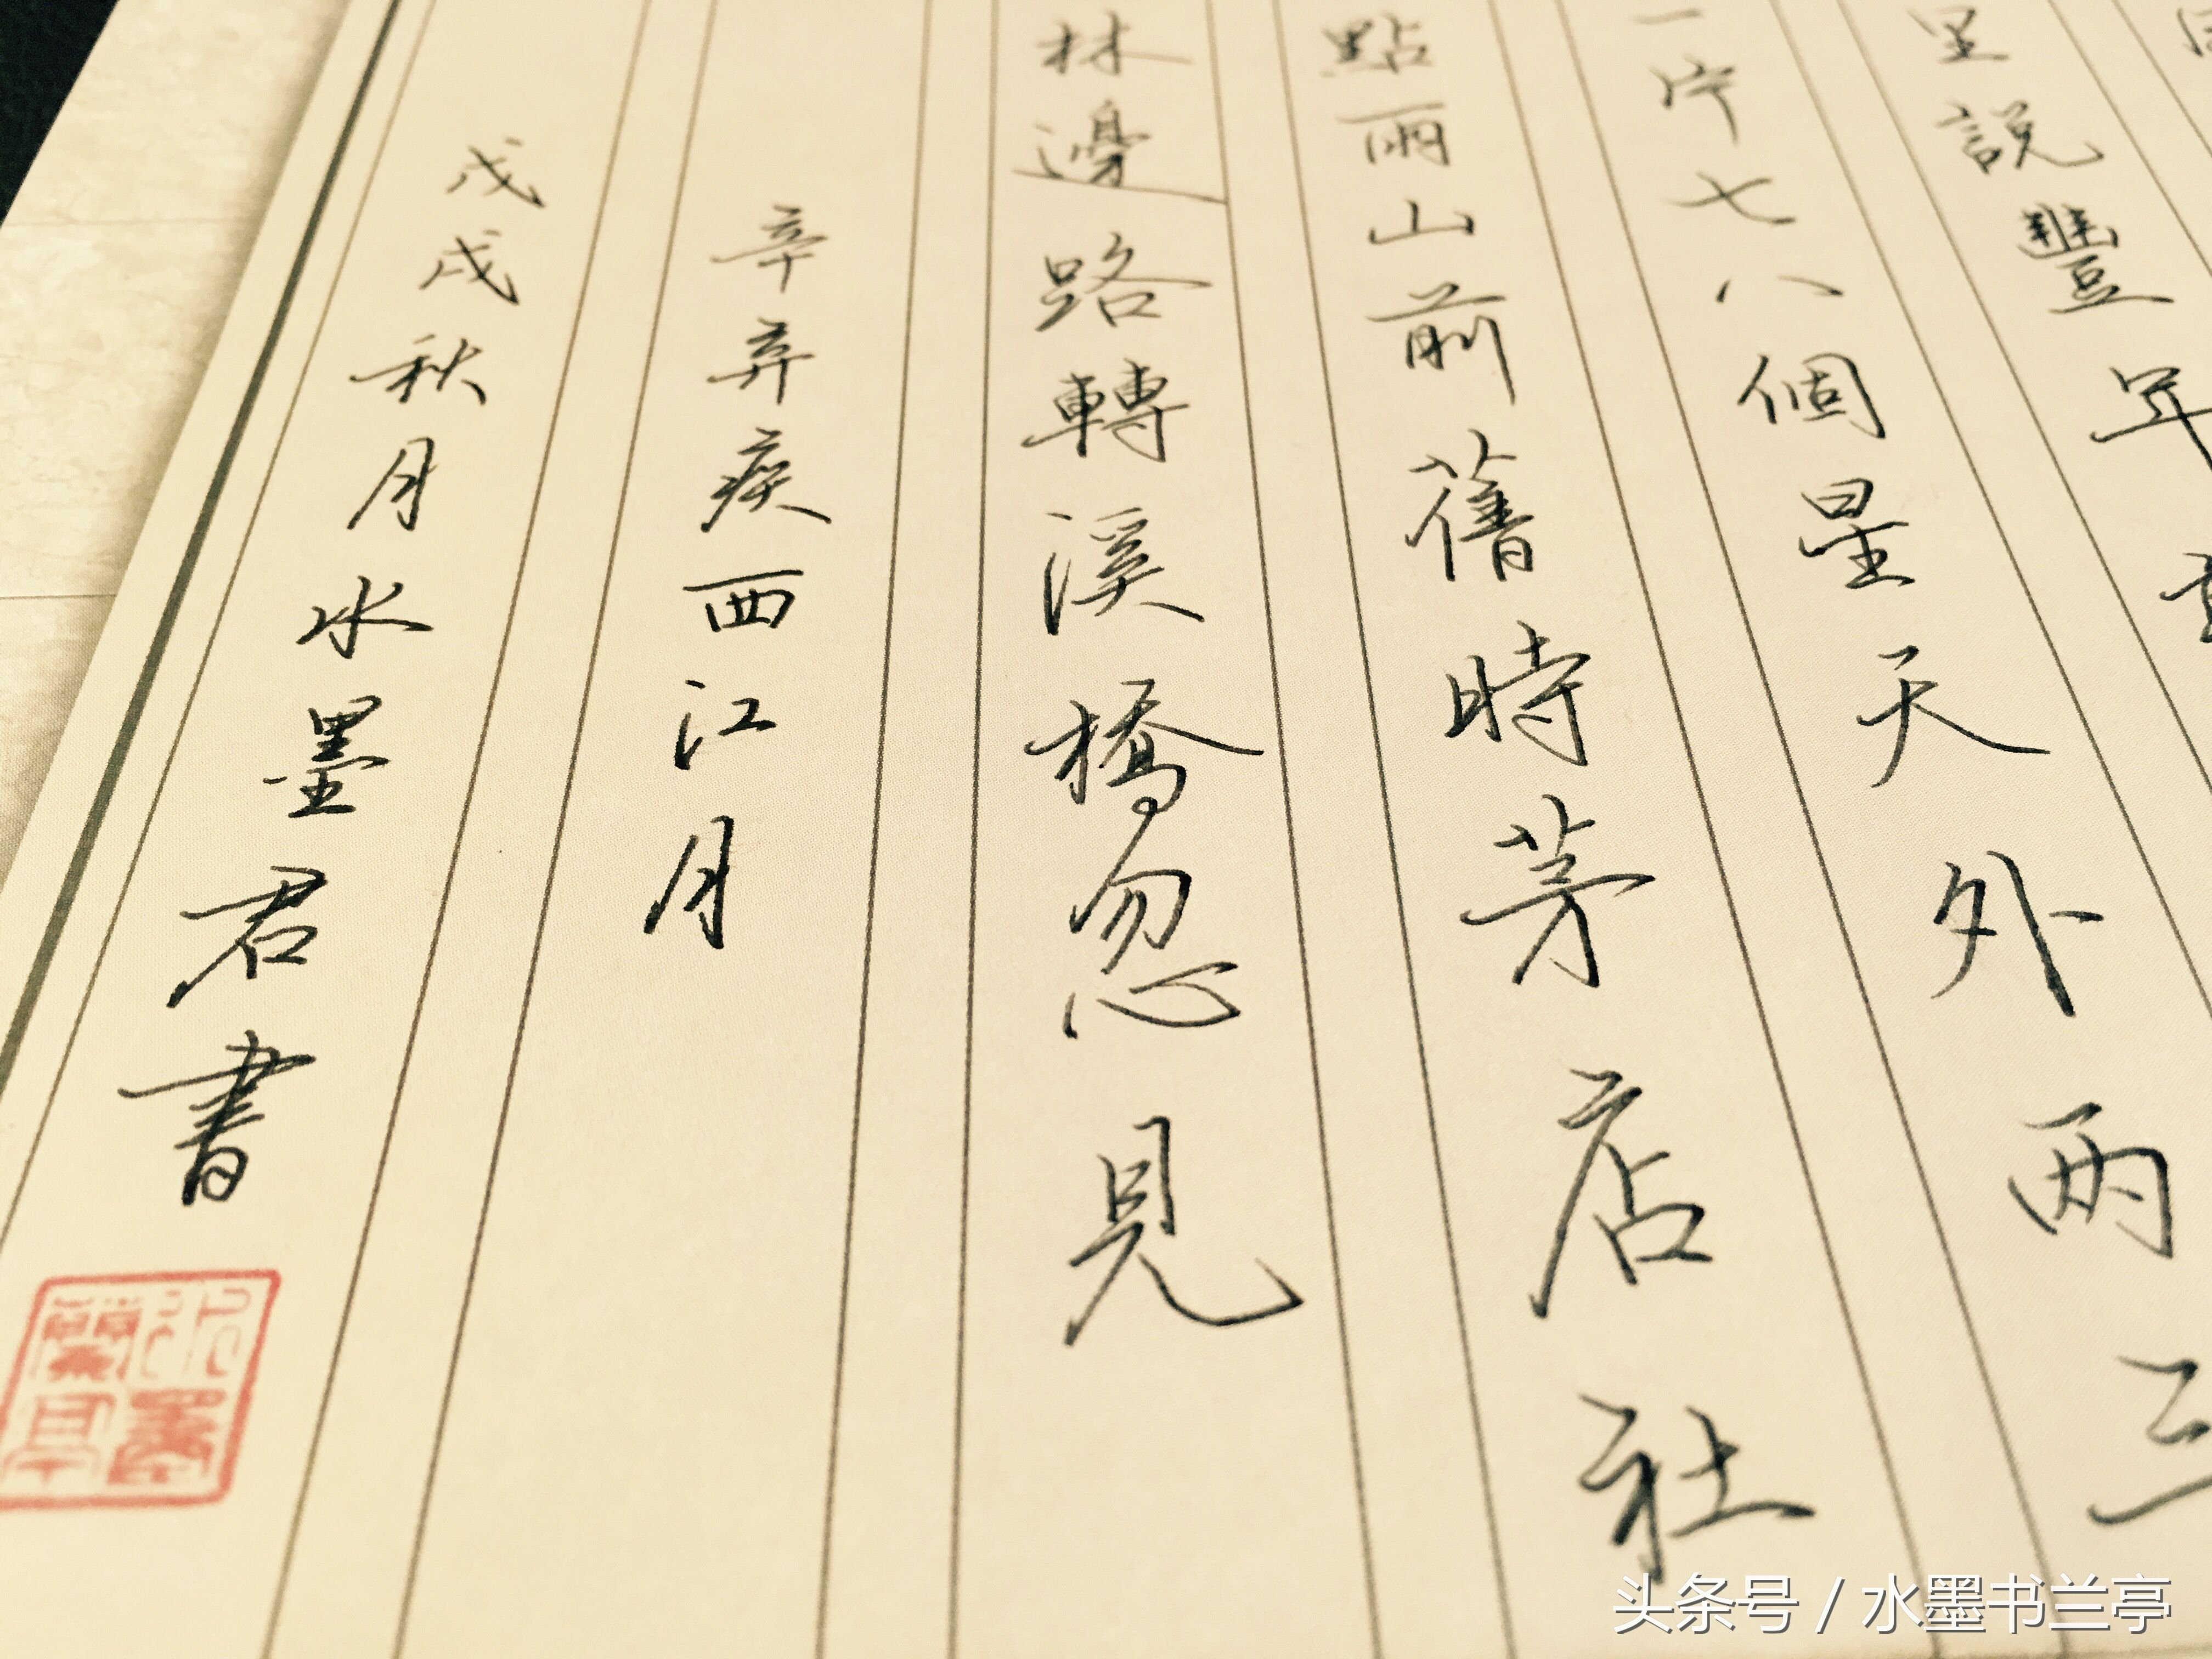 里說豐年
一片七八個星天外两三
點雨山前舊時茅店社
林邊路轉溪橋忽見
辛弃疾西江月
戊戌秋月水墨君書
水墨
蘭亭
头条号 / 水墨书兰亭